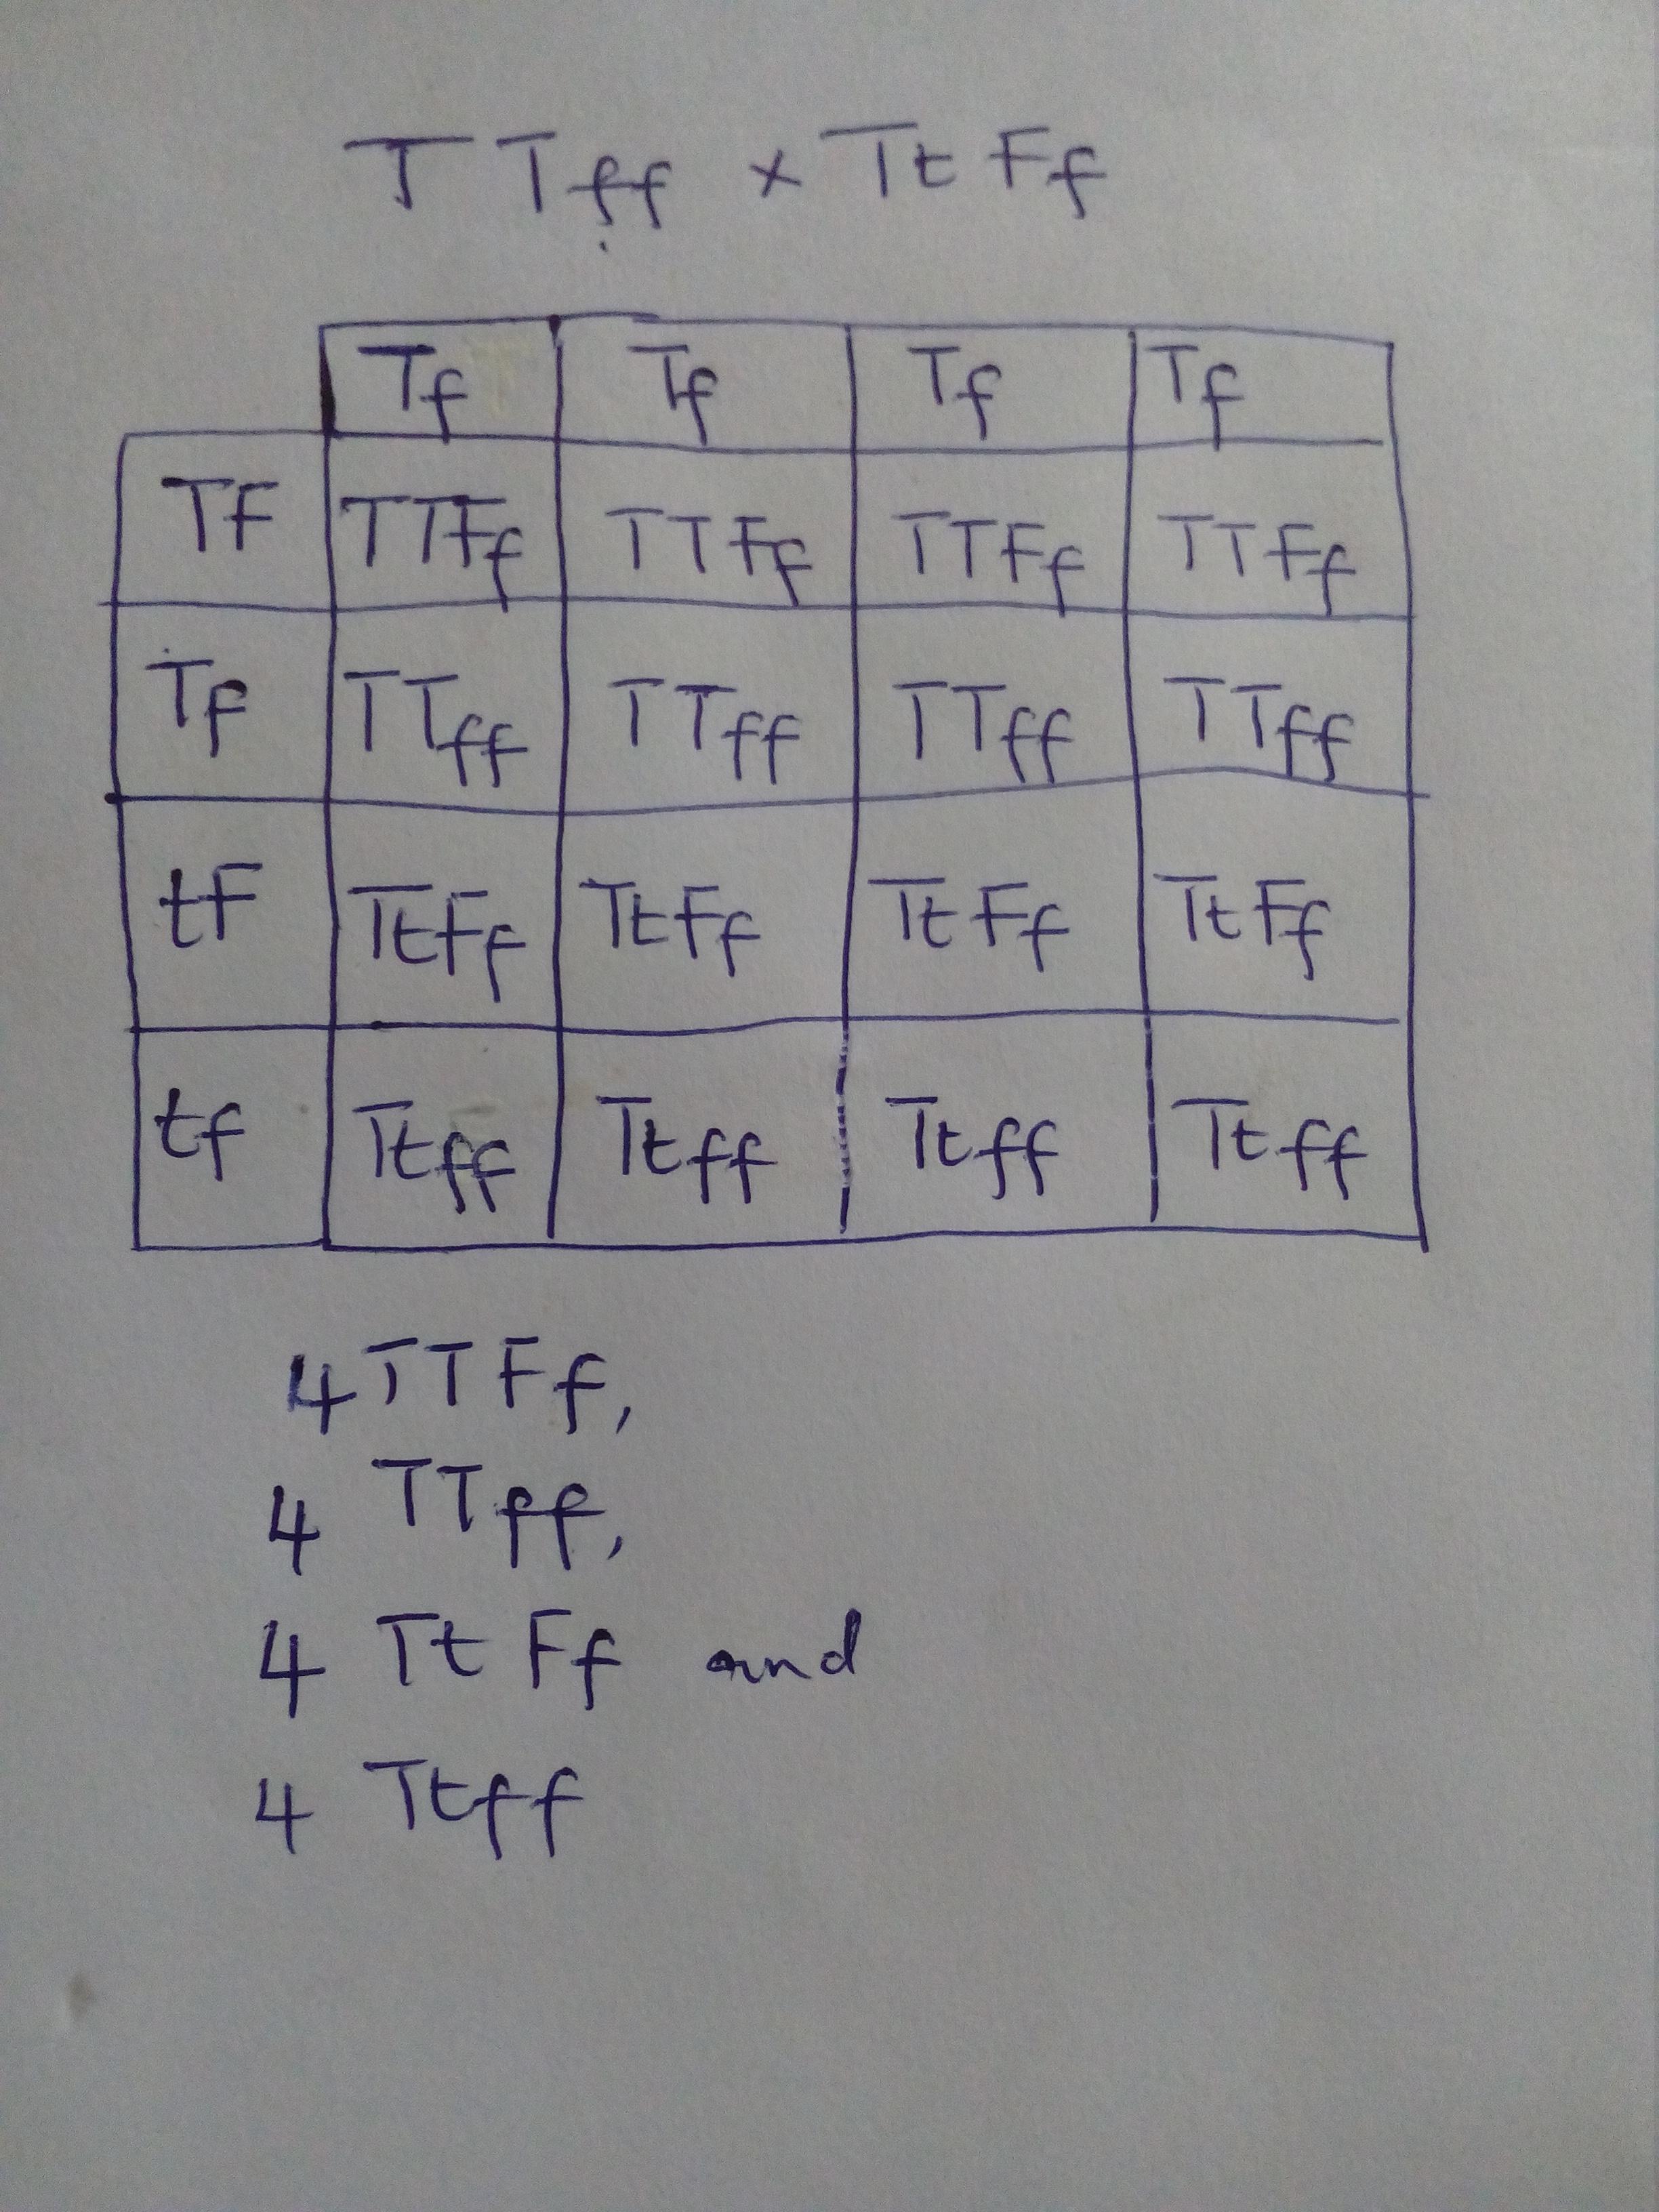 TTff x TtFf
Tf Tf Tf Tf
TF TTFf TTFf TTFf TTFf
Tf TTff TTff TTff TTff
tF TtFf TtFf TtFf TtFf
tf Ttff Ttff Ttff Ttff
4 TTFf,
4 TTff,
4 TtFf and
4 Ttff